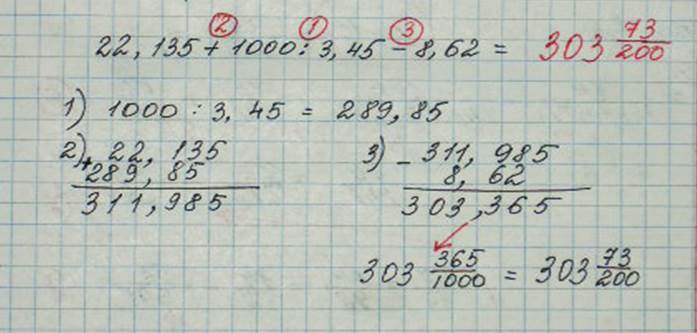 ② ① ③
22,135 + 1000 : 3,45 - 8,62 = 303 73/200
1) 1000 : 3,45 = 289,85
2) + 22,135
289,85
311,985
3) - 311,985
8,62
303,365
303 365/1000 = 303 73/200